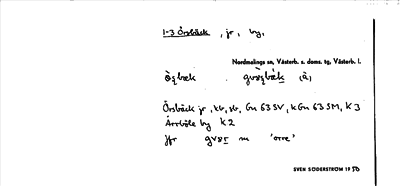 1-3 Örsbäck, jr, by,
Nordmalings sn, Västerb. s. doms. tg, Västerb. l.
(å)
Örsbäck jr, kb, sb, Gn 63 SV, k Gn 63 SM, K 3
Ärrböle by K 2
jfr m 'orre'
SVEN SÖDERSTRÖM 1950